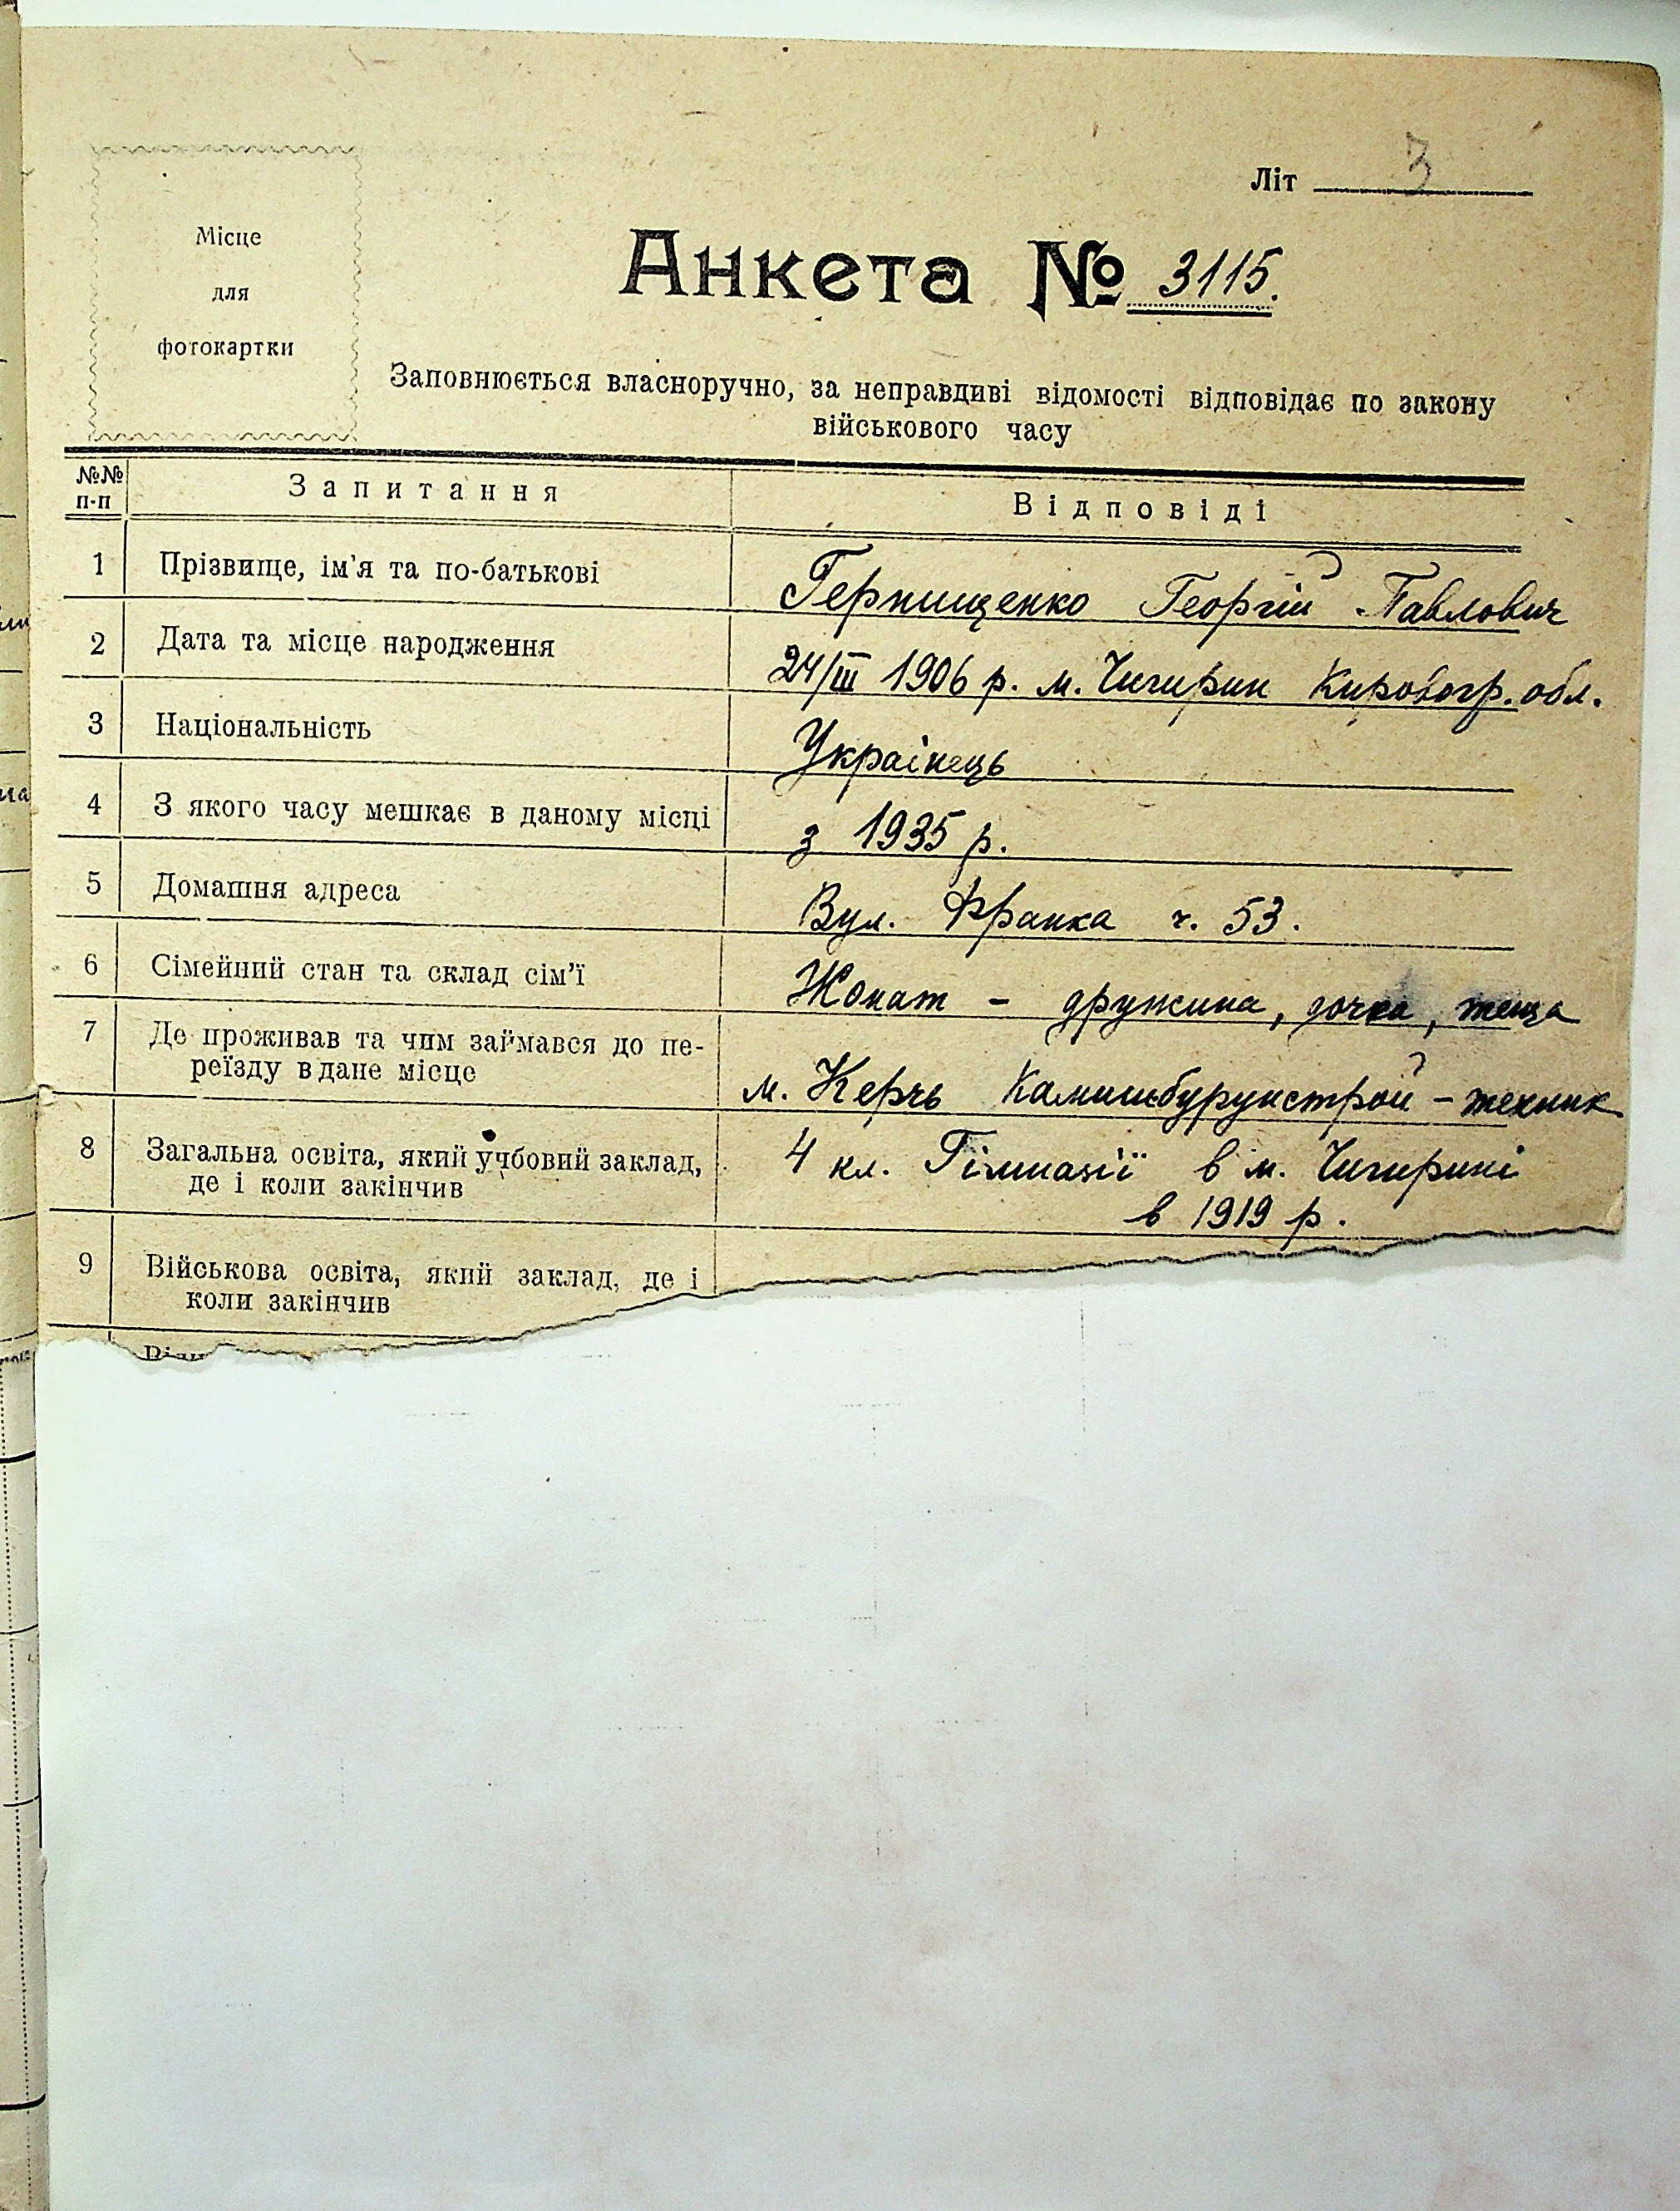 Літ 3
Місце
для
фотокартки
Анкета № 3115.
Заповнюється власноручно, за неправдиві відомості відповідає по закону
військового часу
№№ п-п Запитання Відповіді
1 Прізвище, ім'я та по-батькові Герпищенко Георгій Павлович
2 Дата та місце народження 24/III 1906 р. м. Чигирин Кировогр. обл.
3 Національність Українець
4 З якого часу мешкає в даному місці з 1935 р.
5 Домашня адреса Вул. Франка ч. 53.
6 Сімейний стан та склад сім'ї Жонат – дружина, дочка, теща
7 Де проживав та чим займався до пе-
реїзду в дане місце м. Керчь Камишбурунстрой – техник
8 Загальна освіта, який учбовий заклад, 4 кл. Гімназії в м. Чигирині
де і коли закінчив в 1919 р.
9 Військова освіта, який заклад, де і
коли закінчив